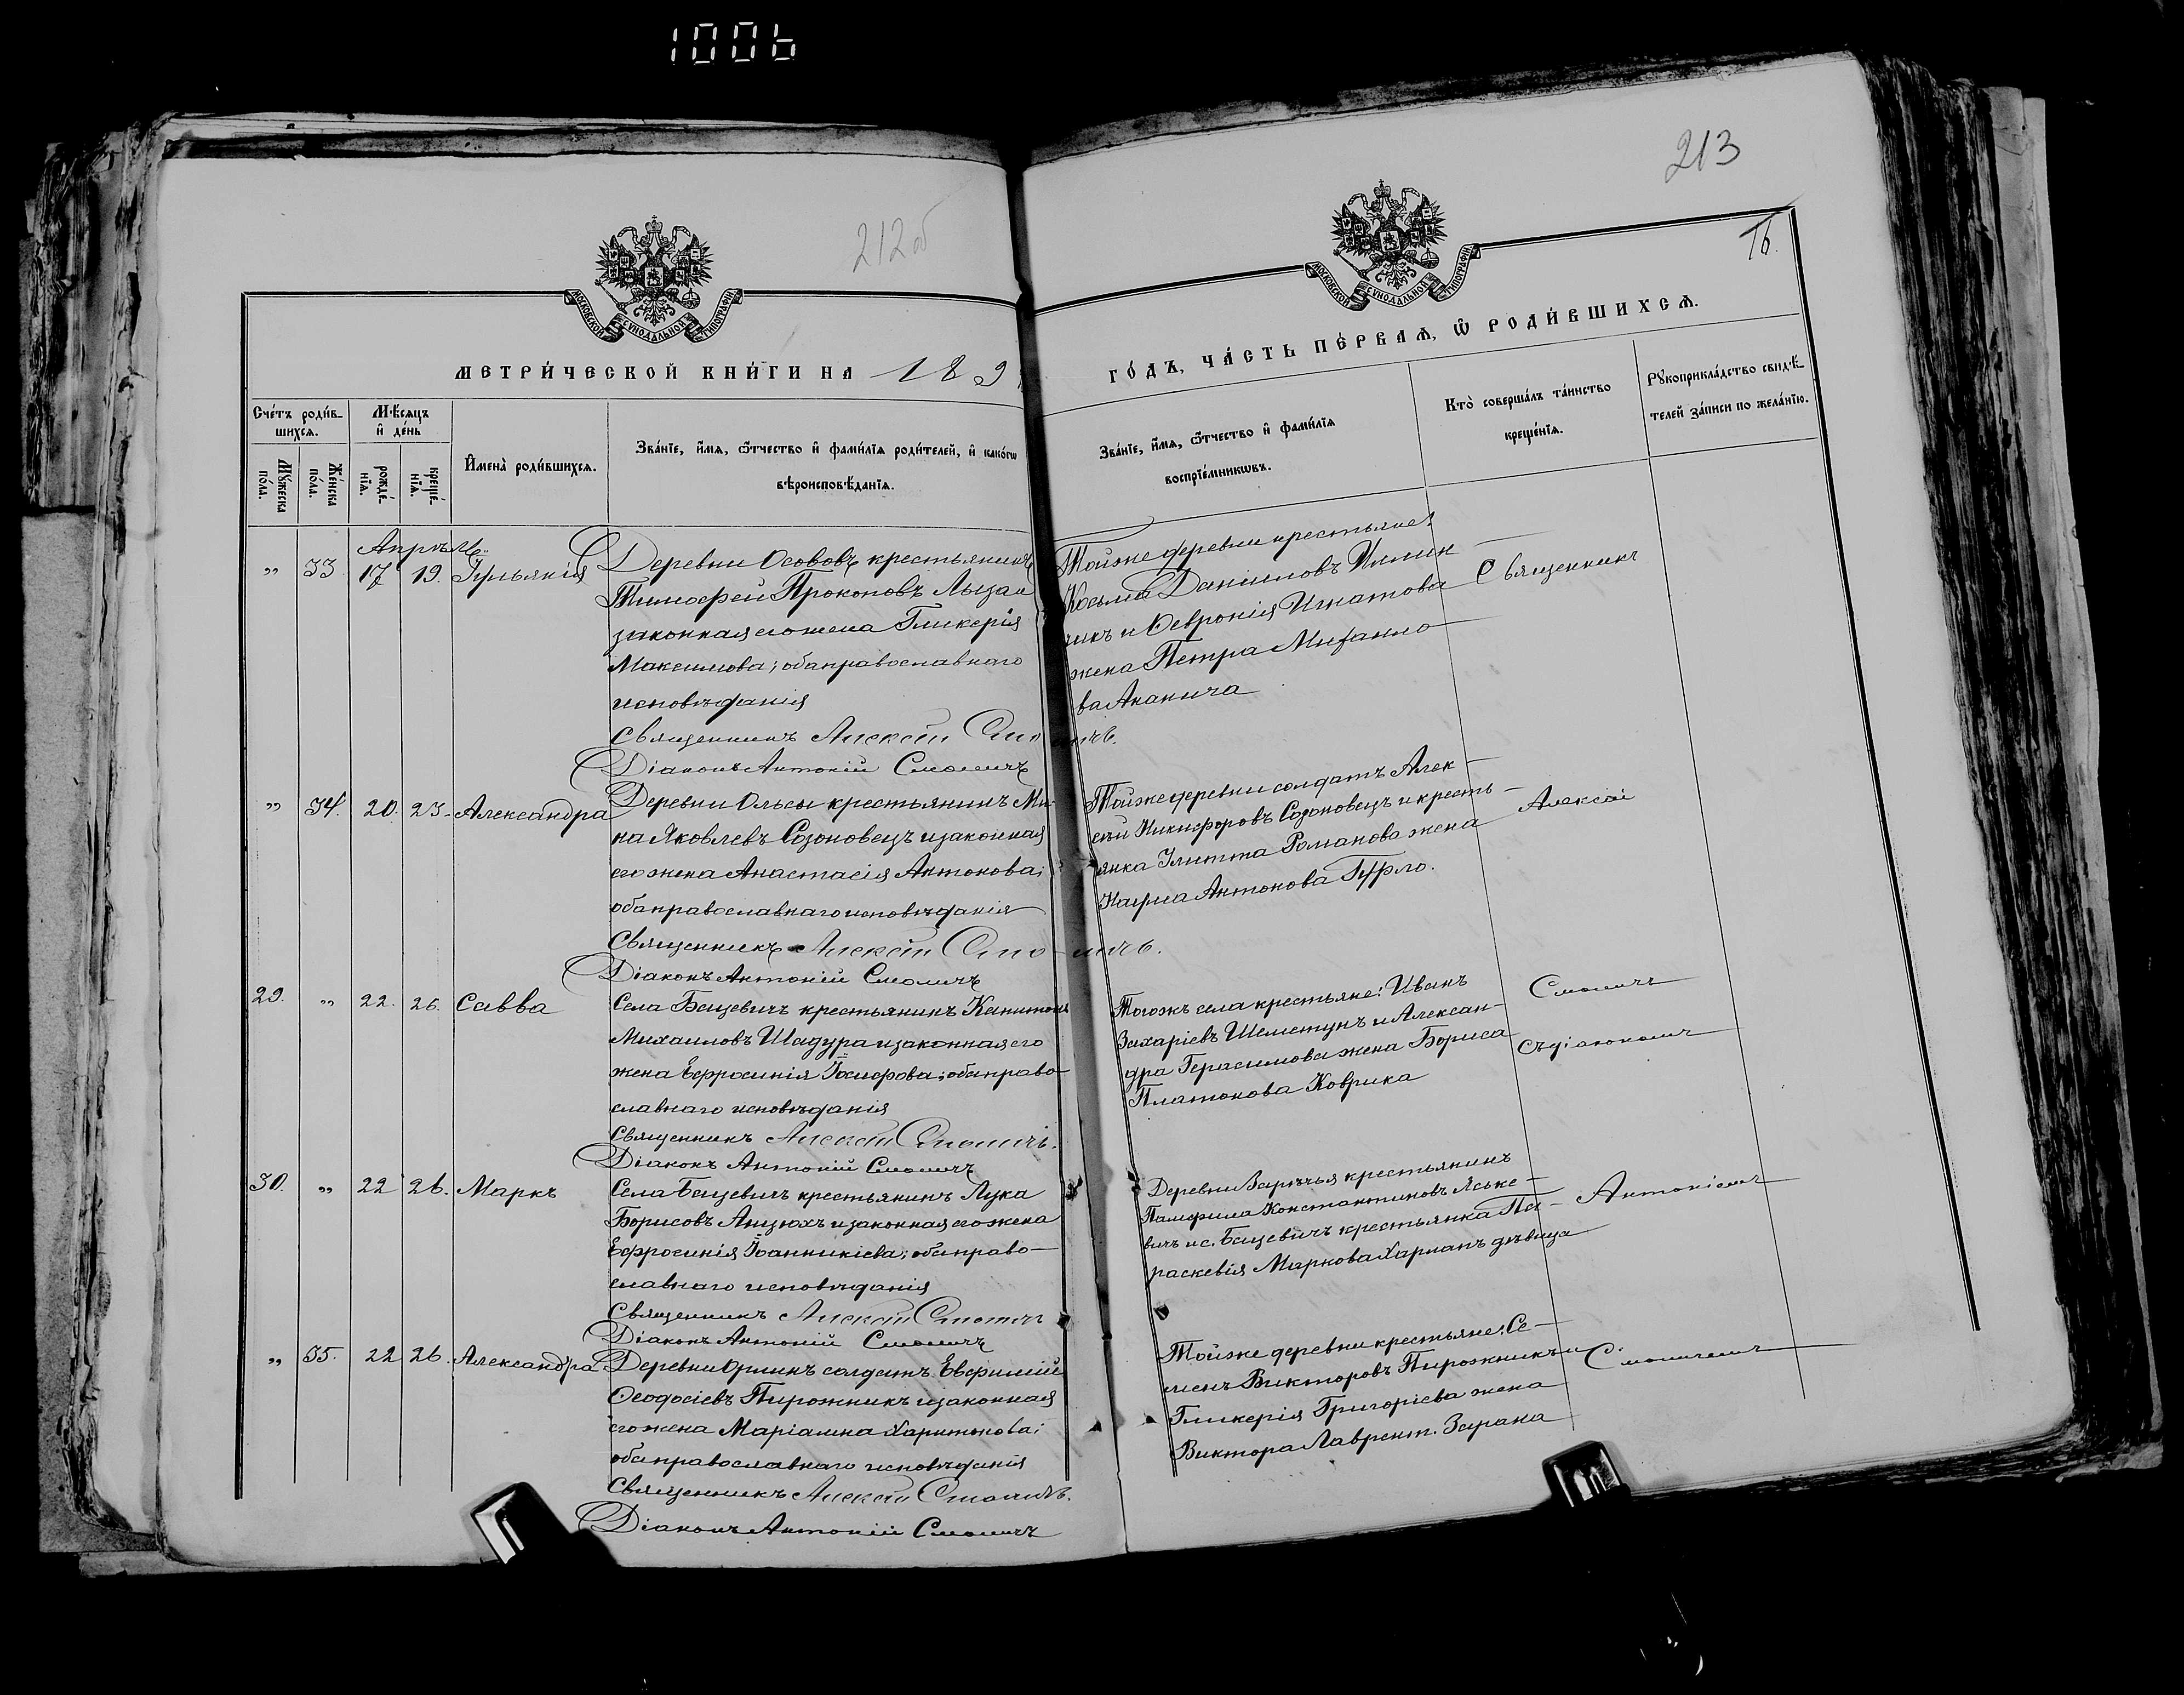 1006
213
212об
16.
МОСКОВСКОЙ СѴНОДАЛЬНОЙ ТИПОГРАФІИ
МОСКОВСКОЙ СѴНОДАЛЬНОЙ ТИПОГРАФІИ
МЕТРИ́ЧЕСКОЙ КНИ́ГИ НА 189
ГО́ДЪ, ЧА́СТЬ ПЕ́РВАѦ, Ѿ РОДИ́ВШИХСѦ.
Сче́тъ роди́в-
шихсѧ.
Мѣ́сѧцъ
и҆ де́нь
Мꙋ́жеска
по́ла.
Же́нска
по́ла.
рожде́-
нїѧ.
креще́-
нїѧ.
И҆мена̀ роди́вшихсѧ.
Зва́нїе, и҆́мѧ, ѻ҆́тчество и҆ фами́лїѧ роди́телей, и҆ како́гѡ
вѣроисповѣ́данїѧ.
Зва́нїе, и҆́мѧ, ѻ҆́тчество и҆ фами́лїѧ
воспрїе́мникѡвъ.
Кто̀ соверша́лъ та́инство
креще́нїѧ.
Рꙋкоприкла́дство свидѣ́-
телей за́писи по жела́нїю.
Апрѣль
„ 33 17 19. Гульянія
Деревни Осововъ крестьянинъ
Тимофей Прокоповъ Лыза и
законная его жена Гликерія
Максимова; оба православнаго
исповѣданія
Священникъ Алексѣй Смоличъ.
Діаконъ Антоній Смоличъ
Тойже деревни крестьяне:
Косьма Даніиловъ
и Февронія Игнатова
жена Петра Михаило-
ва Ананича
Священникъ
„ 34. 20. 23. Александра
Деревни Ольсы крестьянинъ Ми-
на Яковлевъ Созоновецъ и законная
его жена Анастасія Антонова;
оба православнаго исповѣданія
Священникъ Алексѣй Смоличъ.
Діаконъ Антоній Смоличъ
Тойже деревни солдатъ Алек-
сѣй Никифоровъ Созоновецъ и кресть-
янка Улитта Романова жена
Карпа Антонова Гурло.
Алексѣй
29. „ 22. 26. Савва
Села Бацевичъ крестьянинъ Капитонъ
Михаиловъ Шадура и законная его
жена Ефросинія Іосифова; оба право-
славнаго исповѣданія
Священникъ Алексѣй Смоличъ.
Діаконъ Антоній Смоличъ
Тогожъ села крестьяне: Иванъ
Захаріевъ Шеметунъ и Алексан-
дра Герасимова жена Бориса
Платонова Коврика
Смоличъ
съ діакономъ
30. „ 22 26. Маркъ
Села Бацевичъ крестьянинъ Лука
Борисовъ Анцухъ и законная его жена
Ефросинія Іоанникіева; оба право-
славнаго исповѣданія
Священникъ Алексѣй Смоличъ
Діаконъ Антоній Смоличъ
Деревни Зарѣчья крестьянинъ
Памфилъ Константиновъ Яське-
вичъ и с. Бацевичъ крестьянка Па-
раскевія Маркова Харланъ дѣвица
Антоніемъ
„ 35. 22 26. Александра
Деревни Орлинъ солдатъ Евфимій
Феодосіевъ Пирожникъ и законная
его жена Маріамна Харитонова;
оба православнаго исповѣданія
Священникъ Алексѣй Смоличъ.
Діаконъ Антоній Смоличъ
Тойже деревни крестьяне: Се-
менъ Викторовъ Пирожникъ и
Гликерія Григоріева жена
Виктора Лаврент. Зарака
Смоличемъ